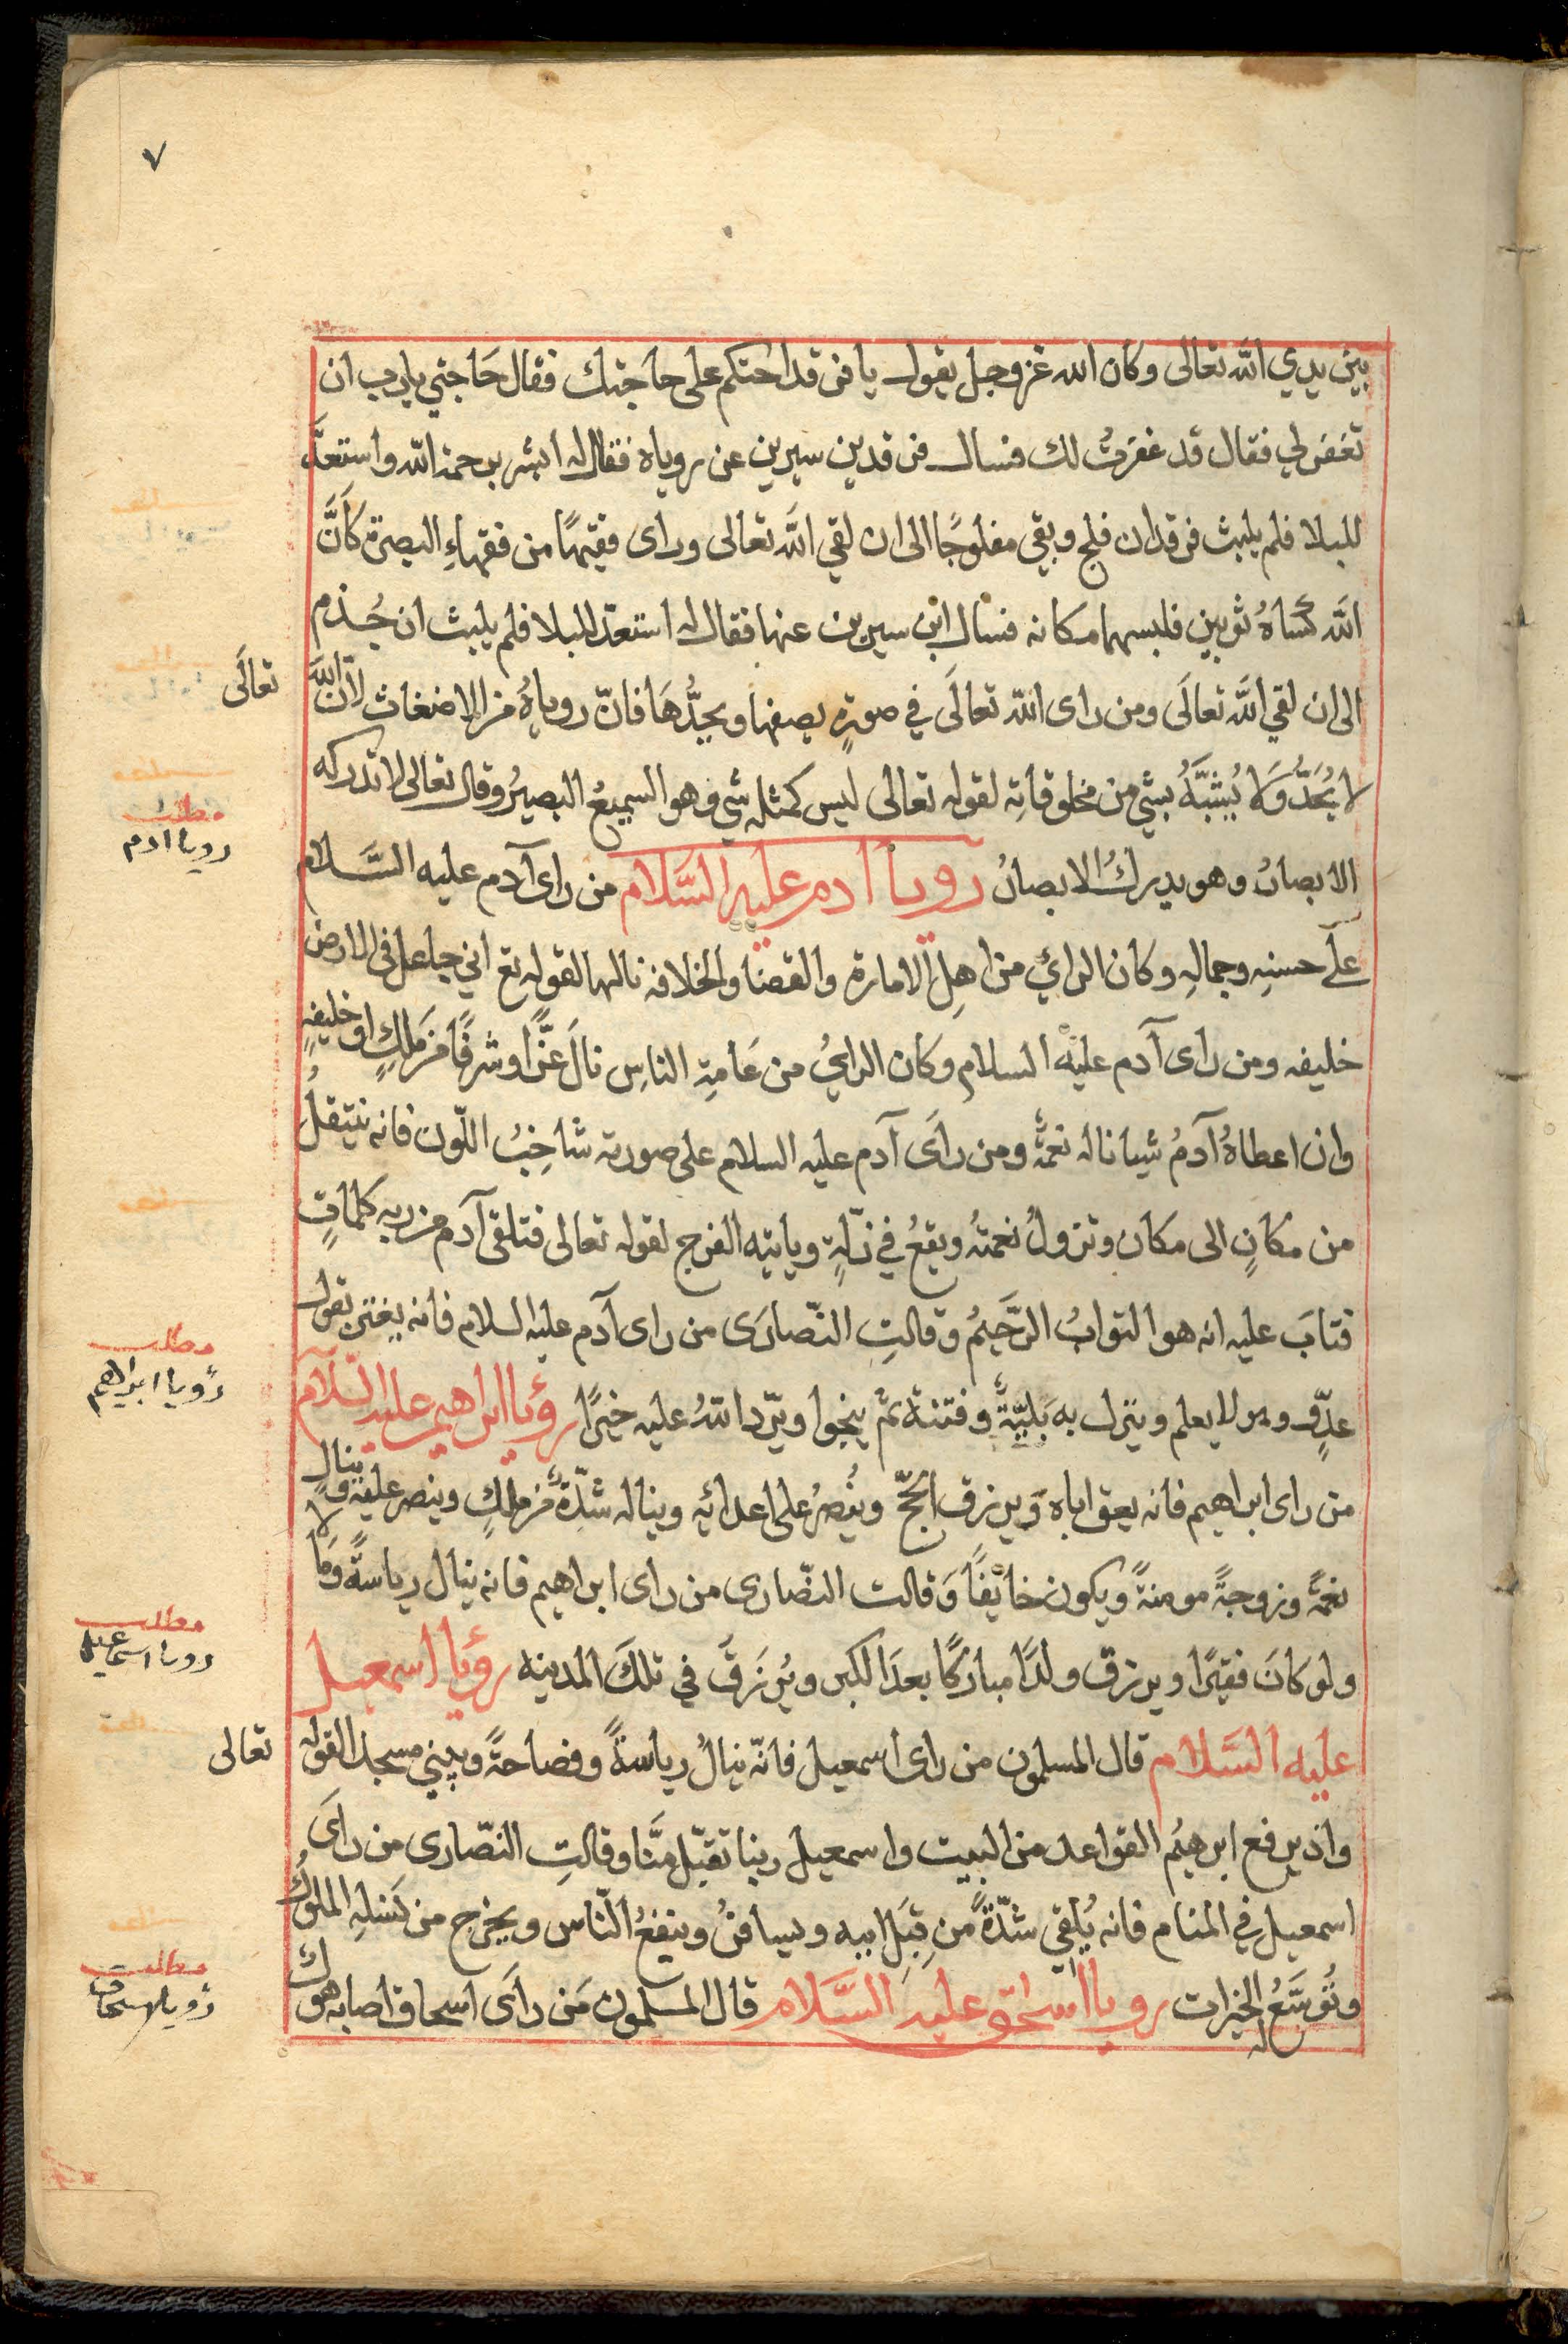 ٧
بين يدي اللّه تعالى وكان الله عز وجل يقول يا فرقد احتكم على حاجتك فقال حَاجتي يا رب ان
تغفر لي فقال قد غفرتُ لك فسال فرقد بن سيرين عن روياه فقال له ابشر برحمة اللّه واستعدَّ
للبلا فلم يلبث فرقد ان فلج وبقي مفلوجًا الى ان لقي اللّه تعالى وراى فقيهًا من فقهاءِ البصرة كَانَّ
اللّه كَسَاهُ ثوبين فلبسهما مكانه فسال ابن سيرين عنها فقال له استعدّ للبلا فلم يلبث ان جُذم
الى ان لقي اللّه تعالَى ومن راى اللّه تعالَى في صورةٍ يصفها ويحدُّهَا فانّ روياهُ من الاضغاث لانّ اللّه
تعالَى
لا يُحَدُّ وَلا يُشبَّهُ بشي من مخلوقاتِه لقوله تعالى ليس كمثله شي وهو السميعُ البصيرُ وقال تعالى لا تدركه
مطلب
رويا ادم
الابصارُ وهو يدركُ الابصارُ رويا ادم عليه السَّلام من راى آدم عليه السَّلام
على حسنِه وجمالِه وكان الرائي من اهلِ الامارة والقضا والخلافه نالها لقوله تع اني جاعل في الارض
خليفه ومن راى آدم عليه السلام وكان الرايُ من عَامةِ الناسِ نالَ عزًّا وشرفًا من مَلِكٍ او خليفةٍ
وان اعطاهُ آدمُ شيا ناله نعمةً ومن راَى آدم عليه السلام على صورته شاحِبُ اللّون فانه ينتقلُ
من مكانٍ الى مكان وتزولُ نعمتهُ ويقعُ في زلّةٍ وياتيه الفرج لقوله تعالى فتلقى آدم من ربه كلماتٍ
فتابَ عليه انه هو التوابُ الرَّحيمُ وقالتِ النّصارَى من راى آدم عليه السلام فانه يغتر بقول
مطلب
رُويا ابراهيم
عدّوٍ وهو لا يعلم وينزل به بَليّةٌ وفتنة ثمّ ينجوا ويرّد اللّهُ عليه خيرًا رؤيا ابراهيم عليه السلام
من راى ابراهيم فانه يعق اباه وَيرزق الحجّ ويُنصرُ على اعدائِه ويناله شدّةٌ من ملكٍ وينصر عليه وينال
نعمةً وزوجةً مومنةً ويكون خائفًا وَقالت النصّارى من راى ابراهيم فانه ينال رياسةً وَمالا
ولو كانَ فقيرًا ويرزق ولدًا مباركًا بعدَ الكبر ويُرزَقَ في تلكَ المدينه رؤيا اسمعيل
مطلب
رويا اسماعيل
عليه السَّلام قال المسلمون من راى اسمعيل فانّه ينالُ رياسةً وفصاحةً ويبني مسجدا لقوله
تعالى
واذ يرفع ابرهيمُ القواعد من البيت واسمعيل ربنا تقبّل منَّا وقالتِ النصّارى من راَى
اسمعيل في المنام فانه يُلقي شدّةً من قِبَلِ ابيه ويسافرُ وينفعُ النّاس ويخرج من نَسلِهِ الملوكُ
وتُوسَّعُ له الخيرات رويا اسحٰق عليه السَّلام قال المسلمون مَن راَى اسحاق اصابه هوك
مطلب
رُويا اسحاق